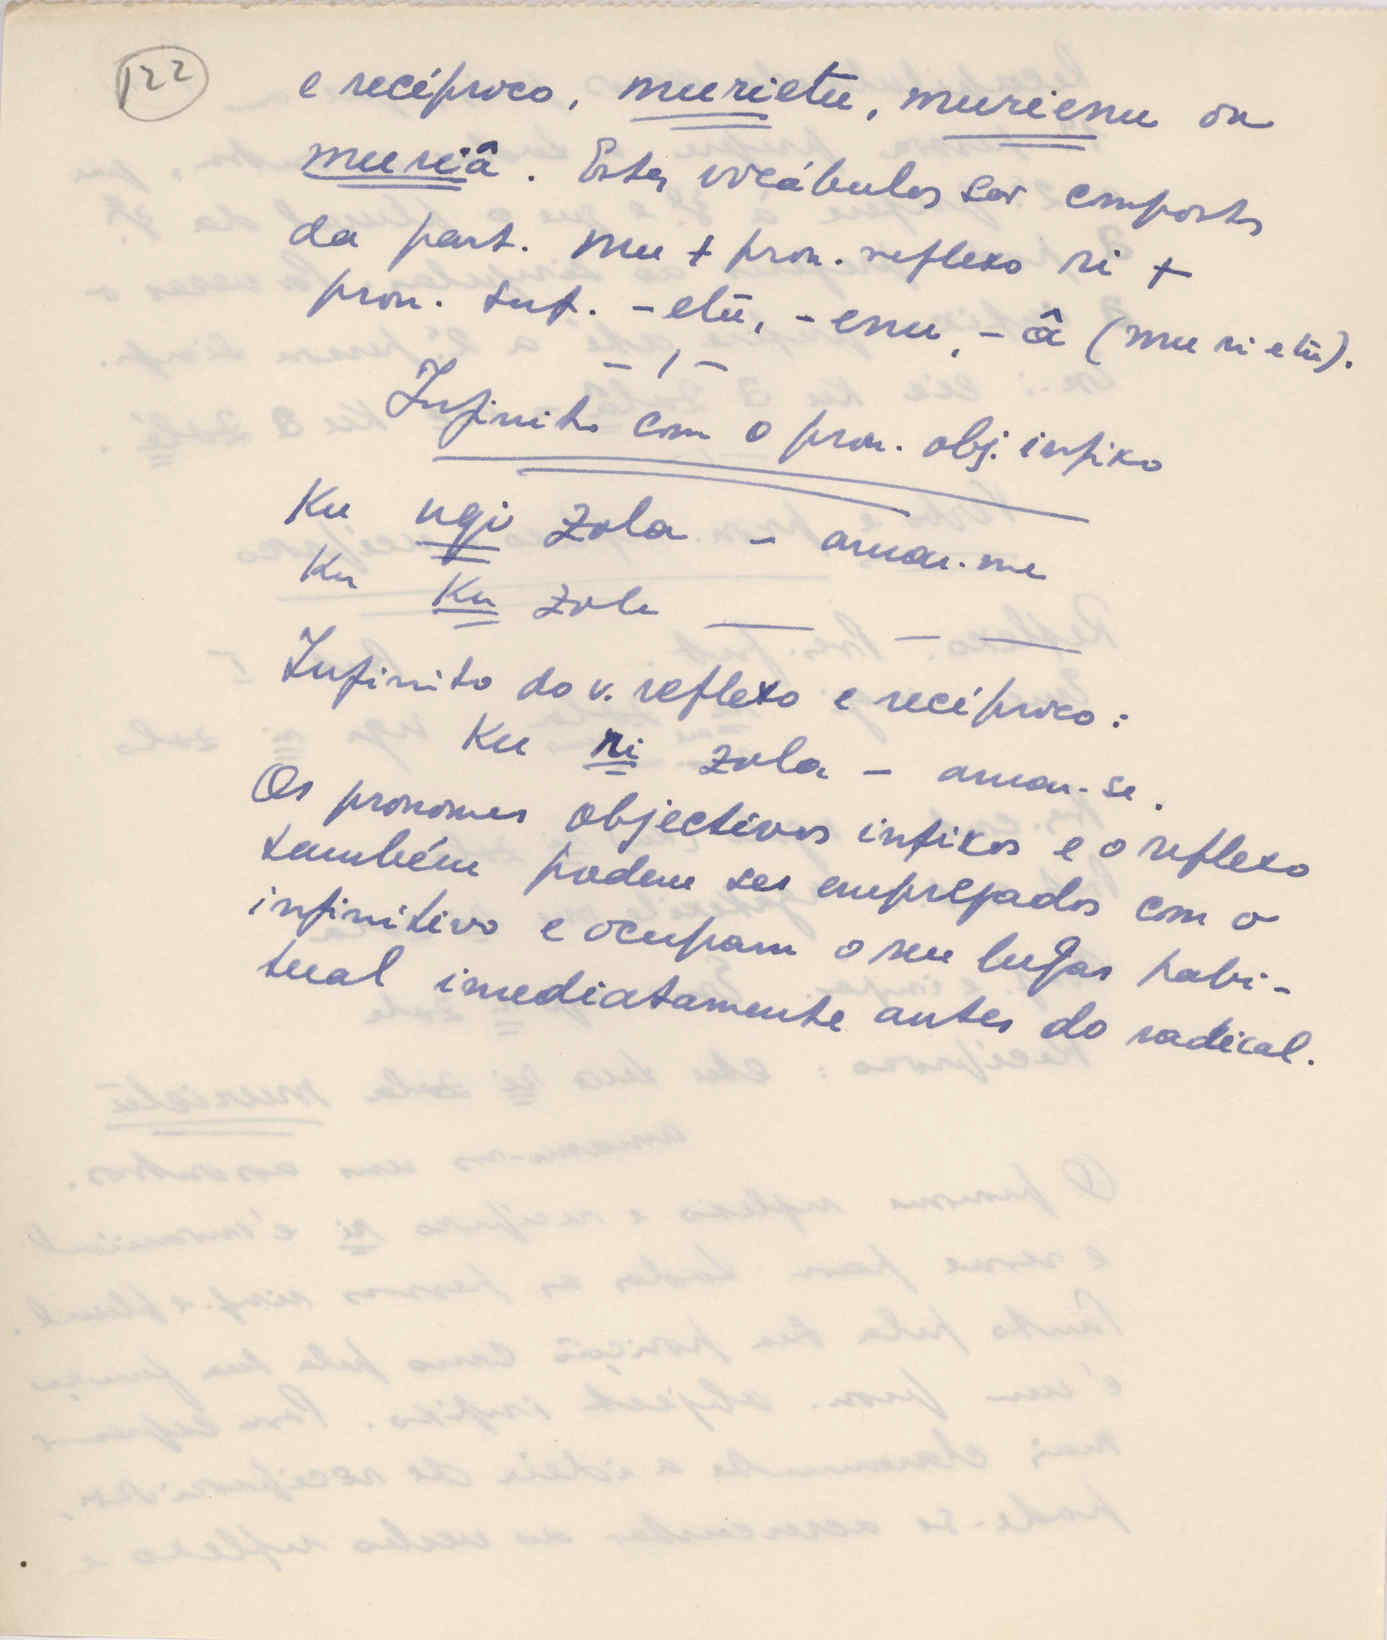 122
e recíproco, murietu, murienu ou
muriâ. Estes vocábulos são compostos
da part. mu + pron. reflexo ri +
pron. suf. - etu, - enu, - â (mu ri etu).
- / -
Infinito com o pron. obj. infixo
Ku ngi zola - amar-me
Ku ku zola — — —
Infinito do v. reflexo e recíproco:
Ku ri zola - amar-se.
Os pronomes objectivos infixos e o reflexo
também podem ser empregados com o
infinitivo e ocupam o seu lugar habi-
tual imediatamente antes do radical.